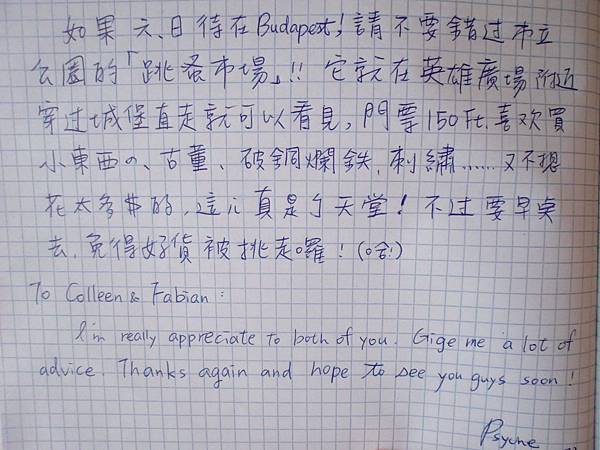 如果六、日待在Budapest, 請不要錯过市立
公園的「跳蚤市場」!! 它就在英雄廣場附近
穿过城堡直走就可以看見, 門票150Ft. 喜欢買
小東西の、古董、破銅爛鉄, 刺繡......又不想
花太多錢的, 這儿真是个天堂! 不过要早桌
去, 免得好貨被挑走囉! (哈!)
To Colleen & Fabian :
I'm really appreciate to both of you. Gige me a lot of
advice. Thanks again and hope to see you guys soon!
Psyche